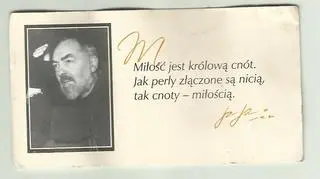 Miłość jest królową cnót.
Jak perły złączone są nicią,
tak cnoty – miłością.